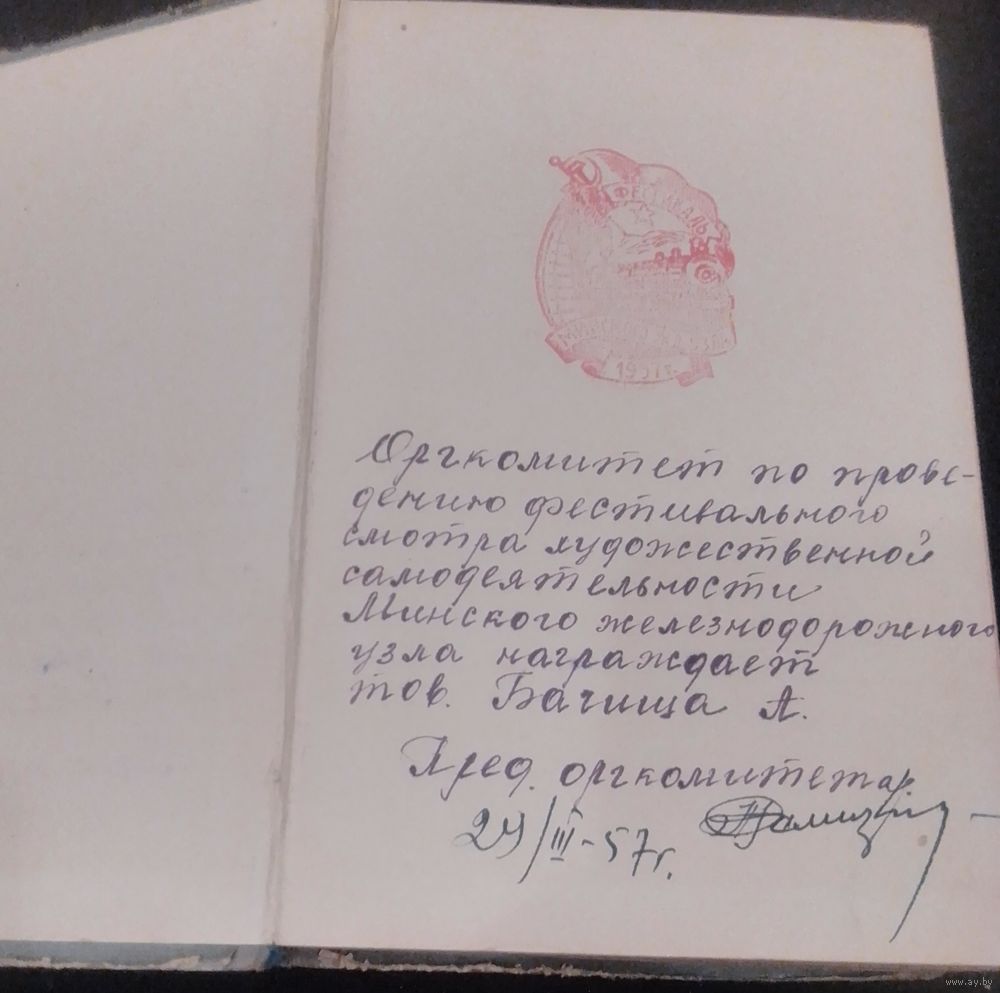 ФЕСТИВАЛЬ
МИНСКОГО Ж.Д. УЗЛА
1957 г.
Оргкомитет по прове-
дению фестивального
смотра художественной
самодеятельности
Минского железнодорожного
узла награждает
тов. Бачища А.
Пред. оргкомитета
29/III-57г.
www.ay.by